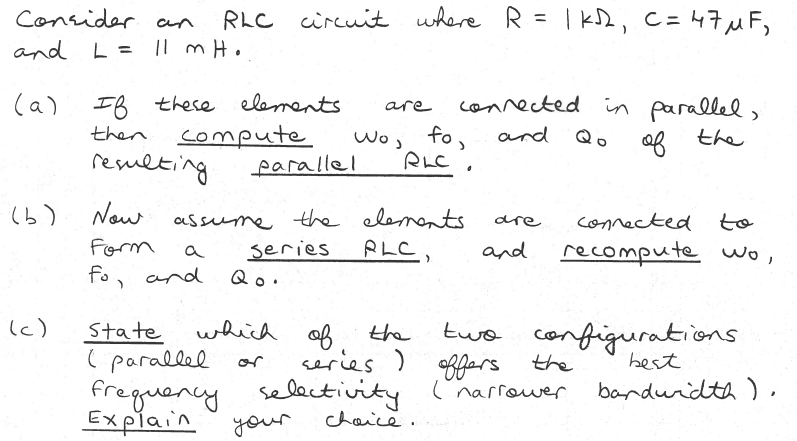 Consider an RLC circuit where R = 1 kΩ, C = 47 μF,
and L = 11 mH.
(a) If these elements are connected in parallel,
then compute ω₀, f₀, and Q₀ of the
resulting parallel RLC.
(b) Now assume the elements are connected to
form a series RLC, and recompute ω₀,
f₀, and Q₀.
(c) State which of the two configurations
(parallel or series) offers the best
frequency selectivity (narrower bandwidth).
Explain your choice.